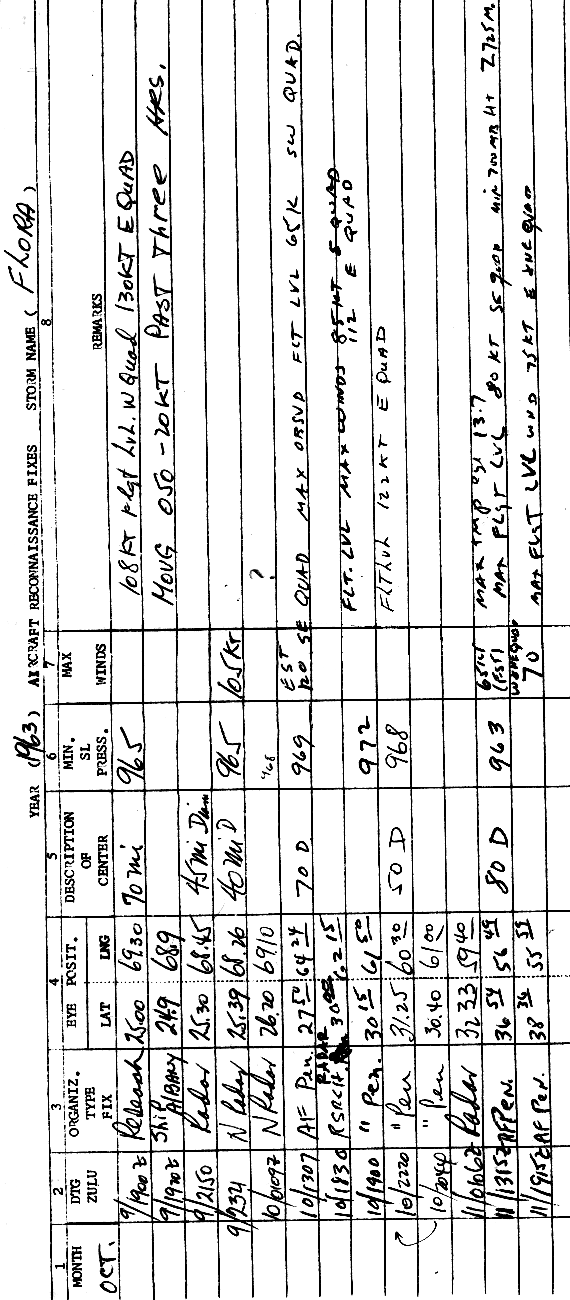 YEAR (1963) AIRCRAFT RECONNAISSANCE FIXES STORM NAME (FLORA)
1 2 3 4 5 6 7 8
MONTH DTG ZULU ORGANIZ. TYPE FIX EYE POSIT. LAT LNG DESCRIPTION OF CENTER MIN. SL PRESS. MAX WINDS REMARKS
OCT. 9/1900Z 2500 6930 70 mi 965 108KT Flgt Lvl. W Quad 130KT E QUAD
9/1970Z Ship ALBANY 24.9 68.9 MOVG 050 - 20KT PAST Three HRS.
9/2150 Radar 25.30 68.45 45 mi Diam
9/234 N Radar 25.39 68 26 40 mi D 965 105KT
10/0109Z N Radar 26.20 6910 ?
10/1307 AF Pen 27 54 64 24 70 D 969 EST 120 SE QUAD MAX OBSVD FLT LVL 65K SW QUAD.
10/1830 RADAR 62 15 FLT. LVL MAX WINDS 85KT S QUAD
112 E QUAD
10/1900 " Pen. 30 15 61 50 972
10/2220 " Pen 31.25 60 30 50 D 968 FLT LVL 122KT E QUAD
10/2040 " Pen 30.40 61 00
11/0106Z Radar 32 33 59 40
11/1315Z AF Pen. 36 54 56 49 80 D 963 65KT (EST) MAX TMP 13.7
MAX FLGT LVL 80 KT SE QUAD MIN 700MB HT 2725M
11/1915Z AF Pen. 38 36 55 53 70 MAX FLGT LVL WND 75KT E QUAD